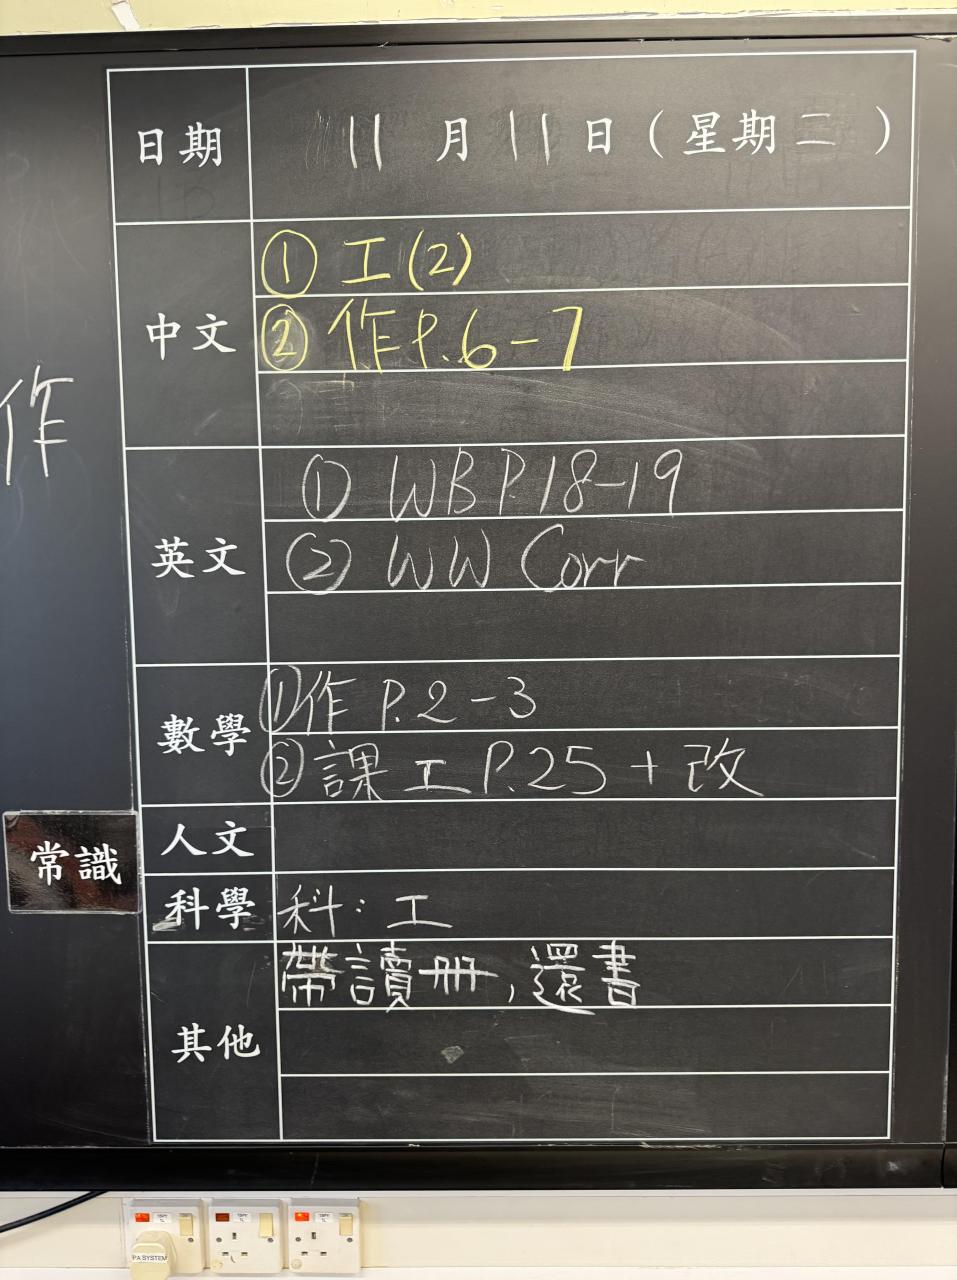 日期 11月11日(星期二)
中文
① 工(2)
② 作P.6-7
作
英文
(1) WB P.18-19
(2) WW Corr
數學
① 作 P.2-3
② 課工 P.25 + 改
人文
常識
科學 科:工
其他
帶讀冊,還書
PA SYSTEM